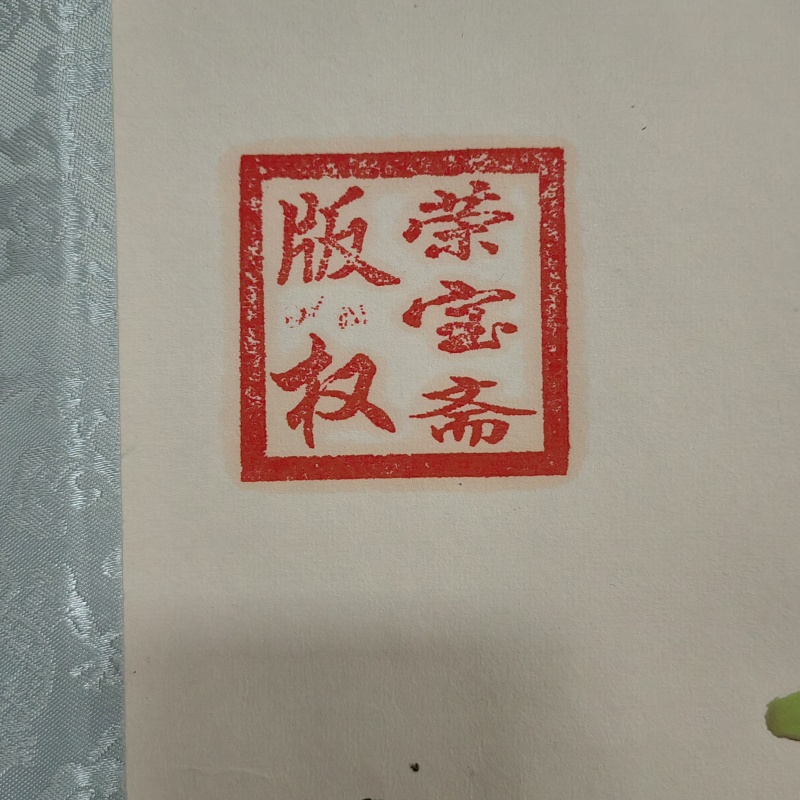 荣宝斋
版权